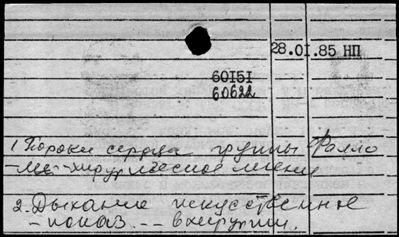 28.01.85 НП
60151
60622
1. Пороки сердца группы Фалло
- хирургическое лечение
2. Дыхание искусственное
- показ. -- в хирургии.